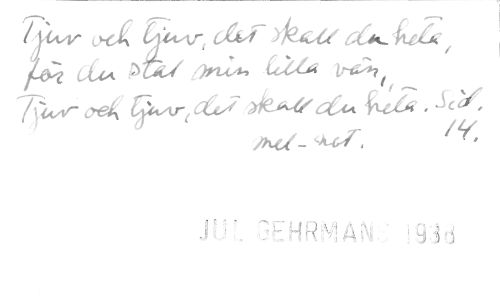 Tjuv och tjuv, det skall du heta,
för du stal min lilla vän,
Tjuv och tjuv, det skall du heta. Sid.
mel-not. 14.
JUL GEHRMANS 1938